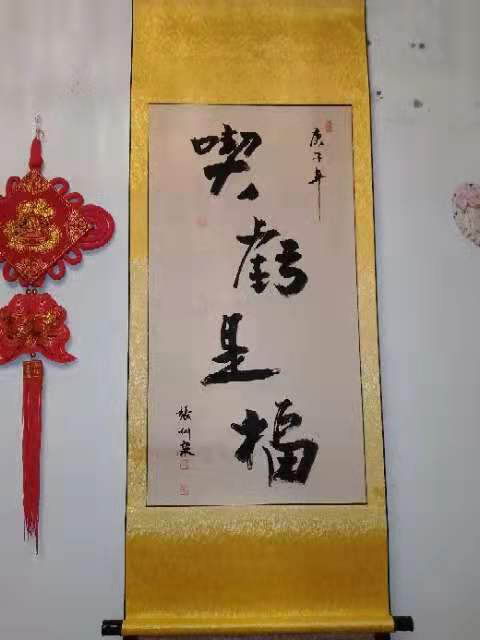 庚子年
喫虧是福
張州泉